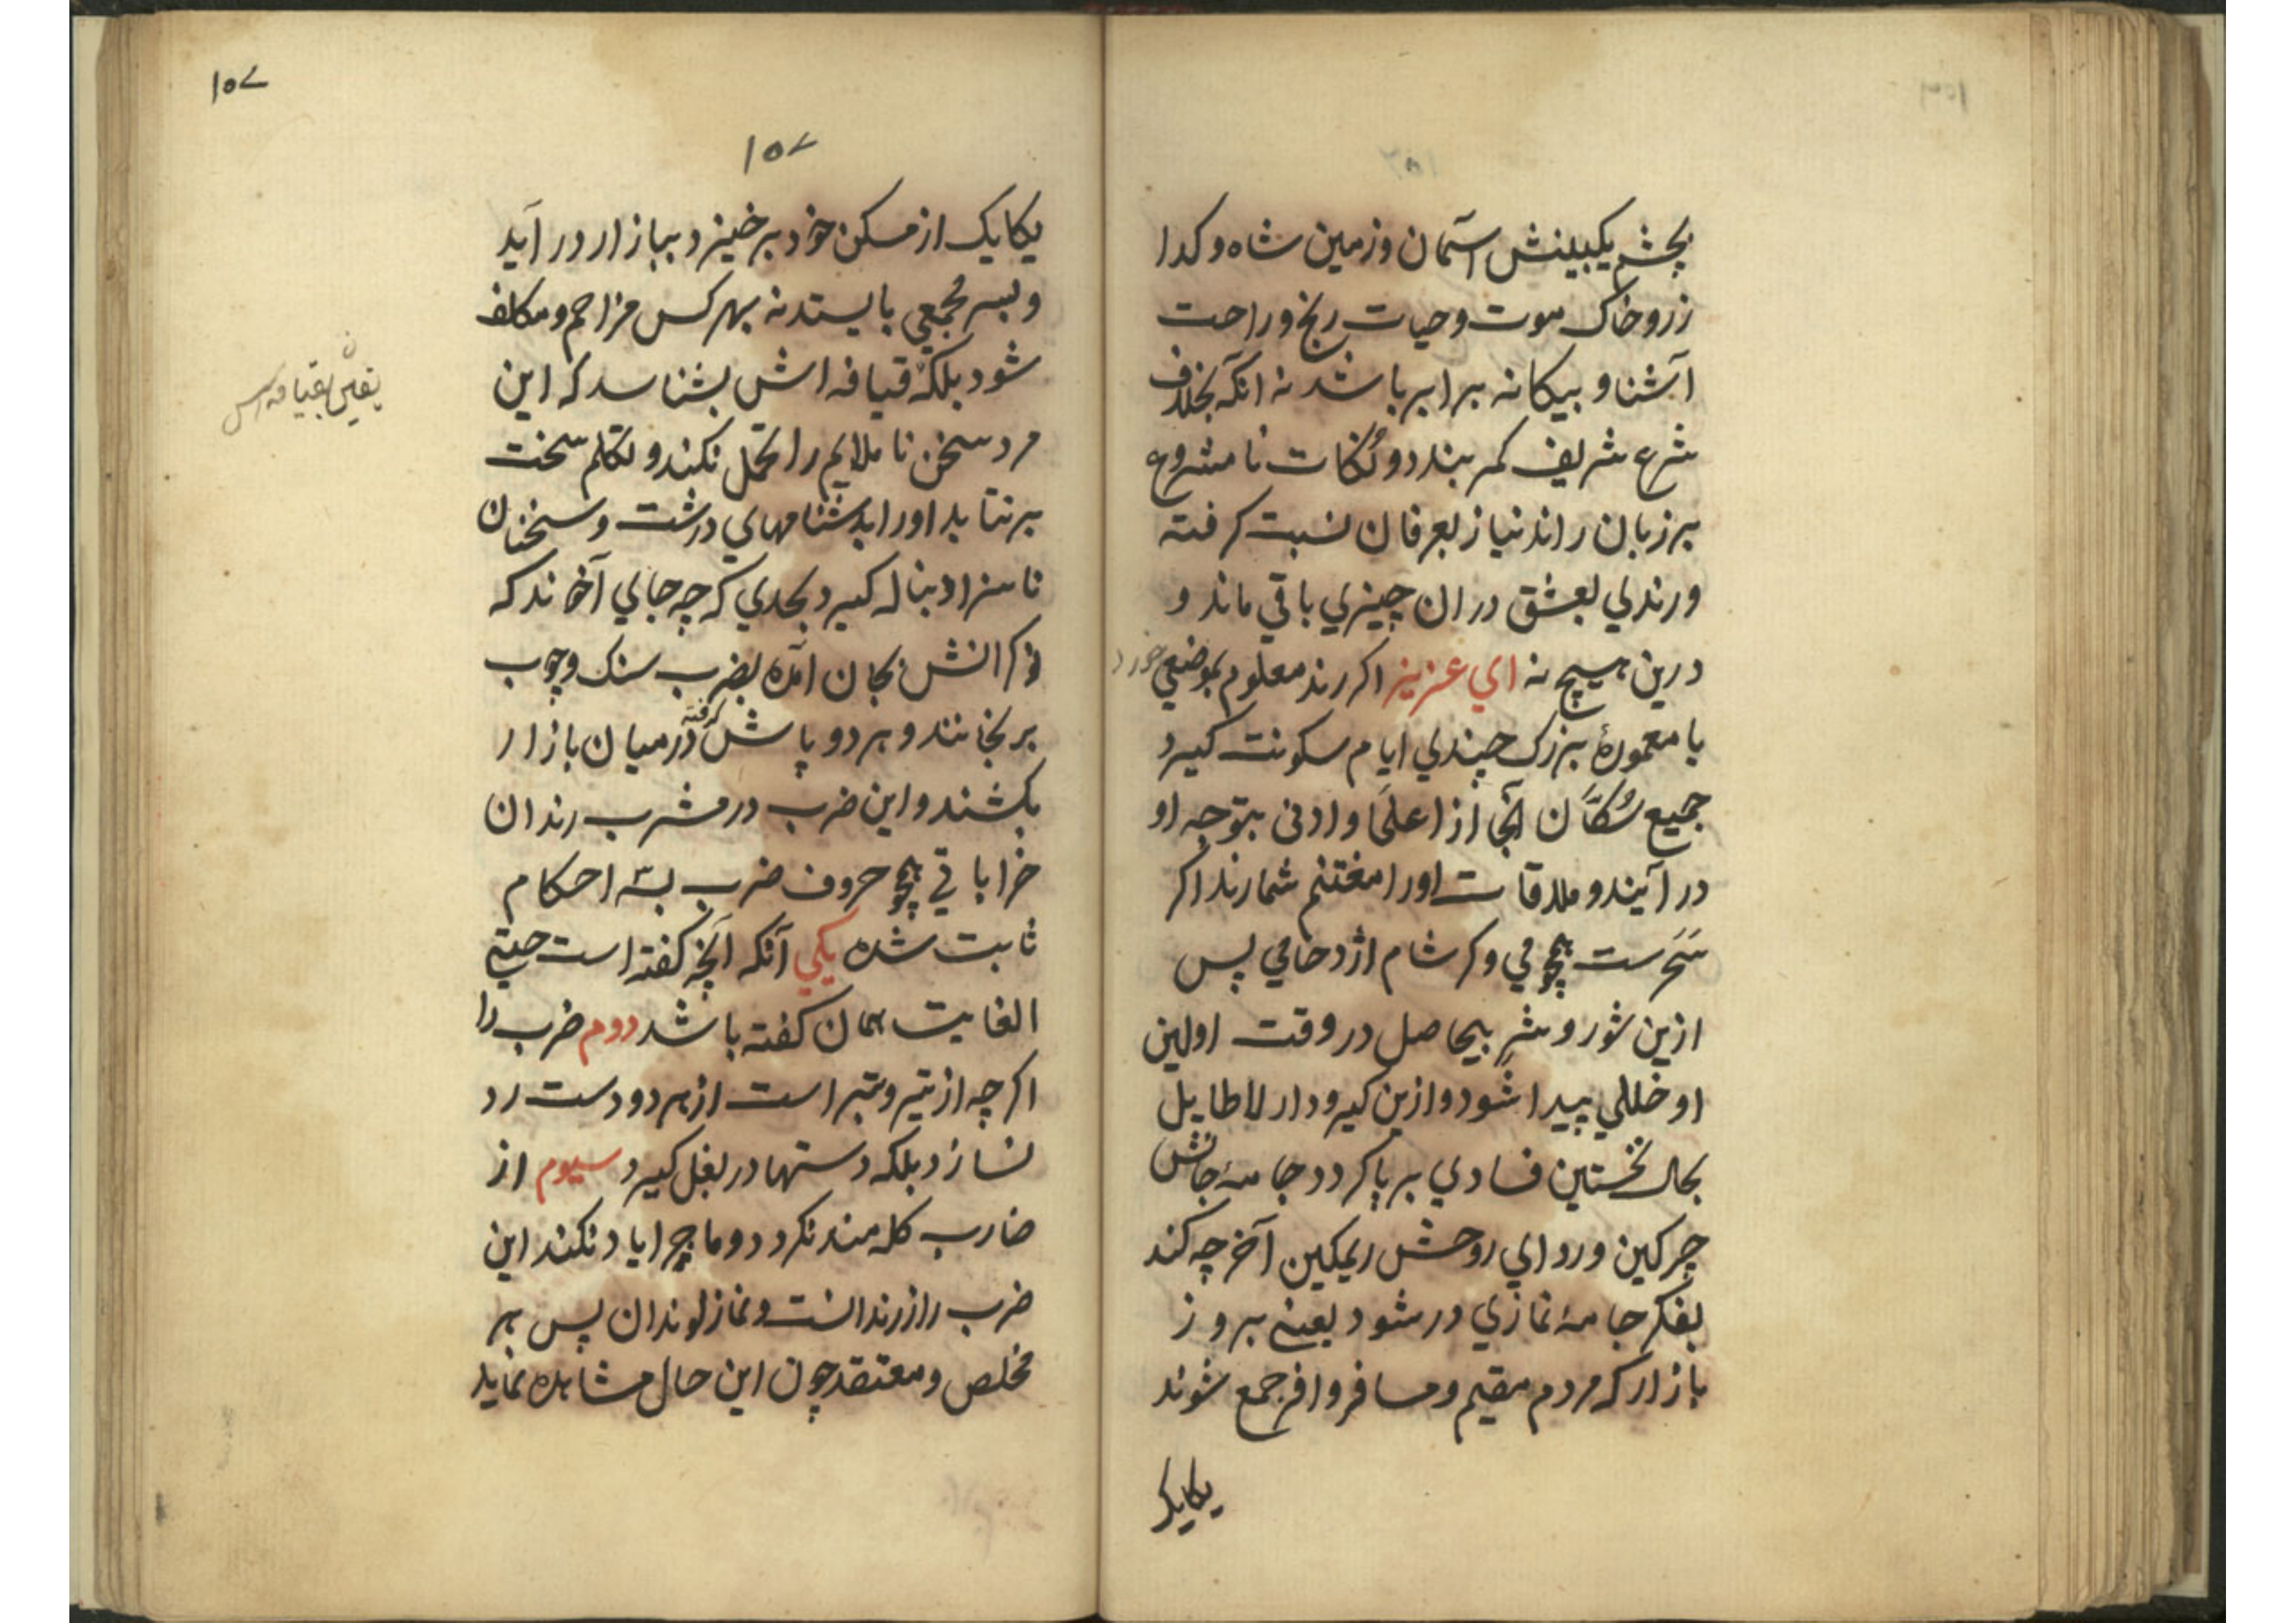 بچشم یکبینش آسمان و زمین شاه و کدا
زر و خاک موت و حیات رنج و راحت
آشنا و بیکانه برابر باشد نه انکه بخلاف
شرع شریف کمر بندد و نکات نامشروع
بر زبان راند نیاز بعرفان نسبت کرفته
و رندی بعشق در ان چیزی باقی ماند و
درین هیچ نه ای عزیز اکر رند معلوم بموضعی خورد
یا معمورهٔ بزرک چندی ایام سکونت کیرد
جمیع سُکّان آنجا از اعلی و ادنی بتوجه او
در آیند و ملاقات او را مغتنم شمارند اکر
سَحَرست هجومی و کر شام ازدحامی پس
ازین شور و شرِ بیحاصل در وقت اولین
او خللی پیدا شود و ازین کیر و دار لاطایل
بحال نخستین فسادی بر پا کردد جامهٔ جانش
چرکین و ردای روحش ریمکین آخر چه کند
بفکر جامهٔ نمازی در شود یعنی بروز
بازار که مردم مقیم و مسافر وافر جمع شوند
یکایک
١٥٧
١٥٧
یکایک از مسکن خود بر خیزد و ببازار در آید
و بسر مجمعی بایستد نه بهر کس مزاحم و مکلف
شود بلکه قیافه اش بشناسد که این
مرد سخن ناملایم را تحمل نکند و تکلم سخت
بر نتابد او را بدشنامهای درشت و سخنان
ناسزا دنباله کیرد بحدی که چه جای آخوند که
بجان آمده بضرب سنک و چوب
برنجانند و هر دو پاش کرفته در میان بازار
بکشند و این ضرب در مشرب رندان
خراباتی همچو حروف ضرب بسه احکام
ثابت شده یکی آنکه آنچه کفته است حیتی
الغایت همان کفته باشد دوم ضرب را
اکرچه از تیر و تبر است از هر دو دست رد
نسازد بلکه دستها در بغل کیرد سیوم از
ضارب کله مند نکردد و ماجرا یاد نکند این
ضرب راز رندانست و نماز لوندان پس هر
مخلص و معتقد چون این حال مشاهده نماید